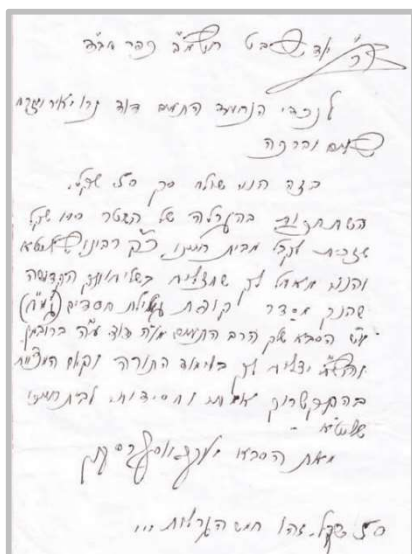 ב"ה יא שבט תשמ"ב כפר חב"ד
לנכדי הנחמד התמים דוד נרו יאיר
שלום וברכה
בזה הנני שולח סך סל שקל.
השתתפות בהגרלה של השטר מאה שקל
שזכית לקבל מבית חיינו כ"ק רבינו שליט"א
והנני מאחל לך שתצליח בשליחותך הקדושה
שהנך מסדר קופת גמילות חסדים (גמ"ח)
ע"ש הסבא שלך הרב התמים דוד ע"ה ברוכמן.
והשי"ת יצליח לך בלימוד התורה וקיום המצות
בהתקשרות אמתית וחסידות לבית חיינו
שליט"א -
מאת הסבא
סל שקל. זהו חמש הגרלות ...